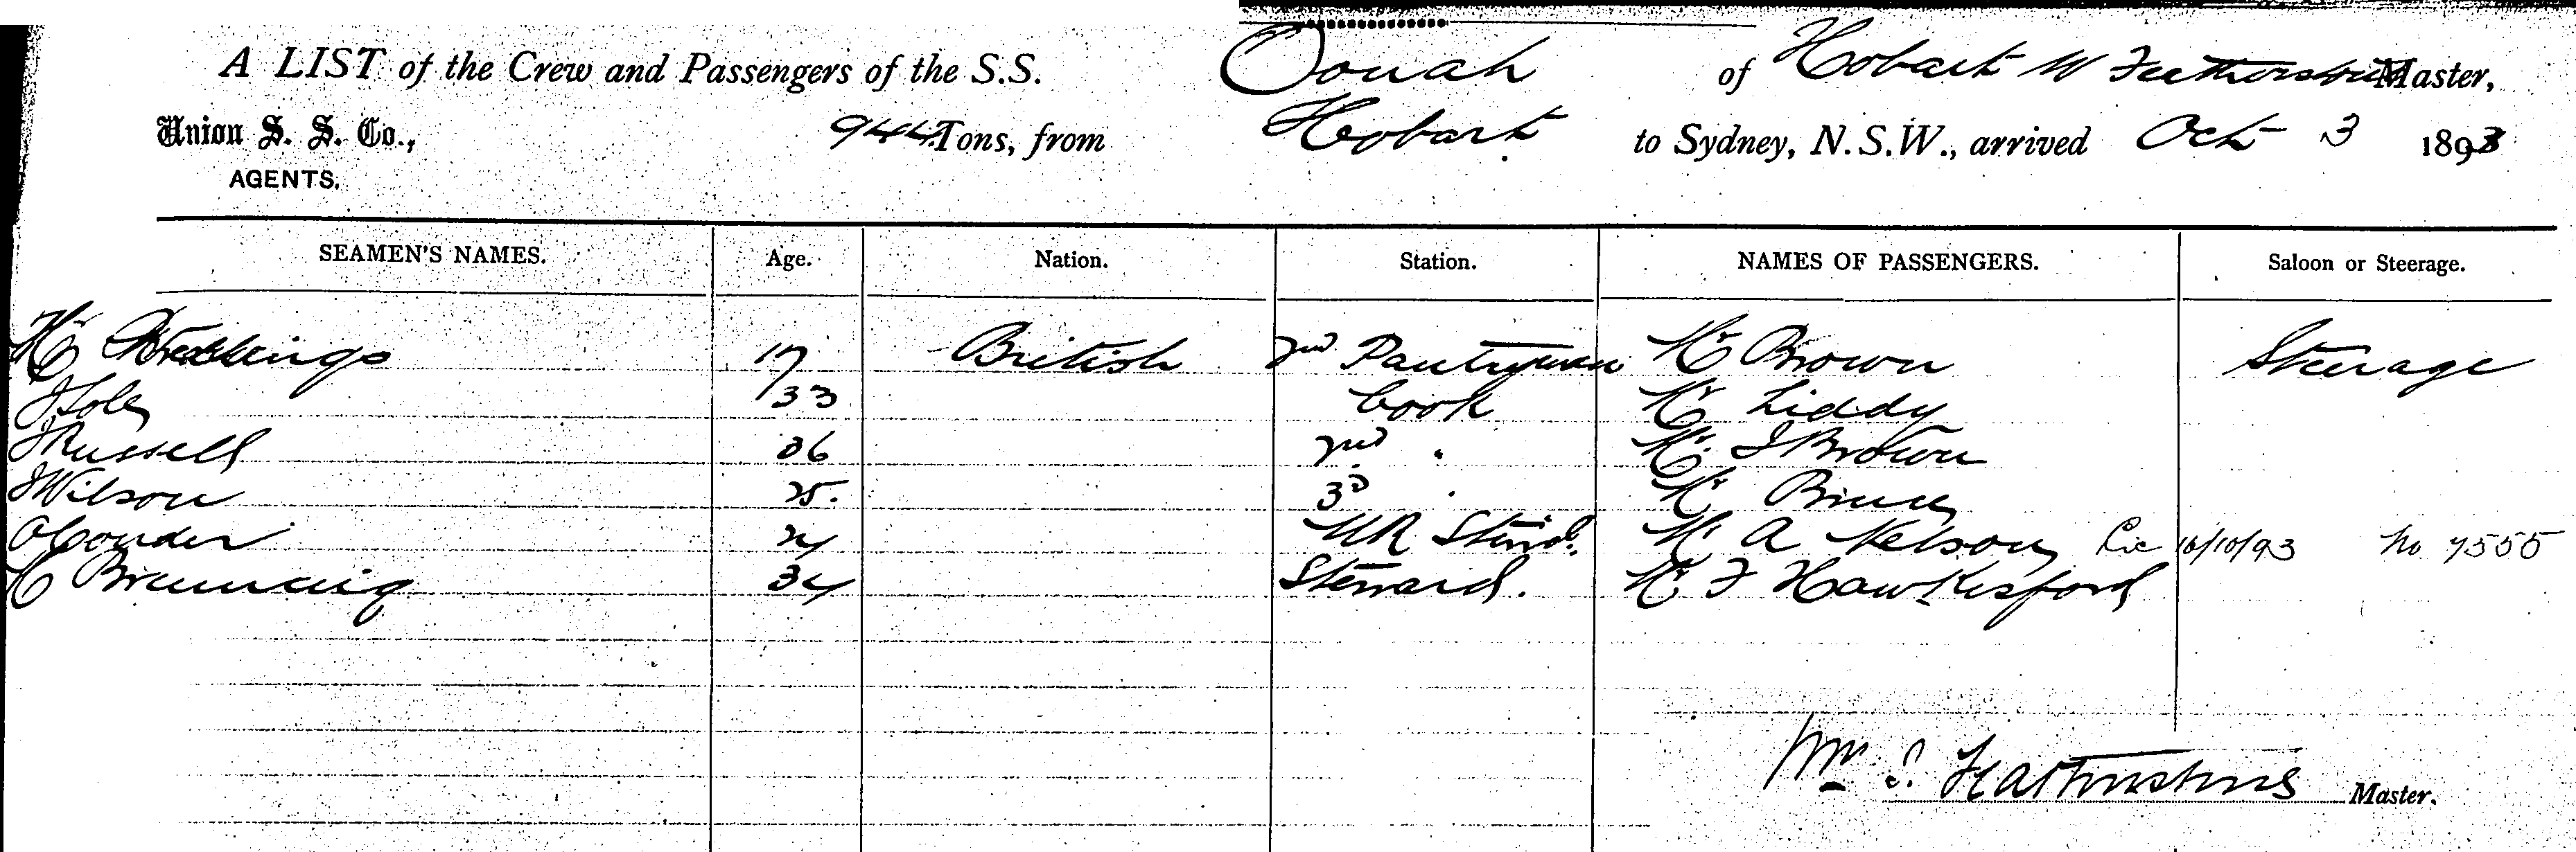 A LIST of the Crew and Passengers of the S.S. Oonah of Hobart W Featherstone Master,
Union S. S. Co., 944 Tons, from Hobart to Sydney, N.S.W., arrived Oct 3 1893
AGENTS.
SEAMEN'S NAMES. Age. Nation. Station. NAMES OF PASSENGERS. Saloon or Steerage.
17 British 2nd Pantryman Mr Brown Steerage
33 Cook Mr Liddy
J Russell 36 2nd " Mr J Brown
J Wilson 25. 3d " Mr
24 Mr A Nelson Lic 16/10/93 No 7555
34 Steward. Mr F Hawkesford
Wm Featherstone Master.